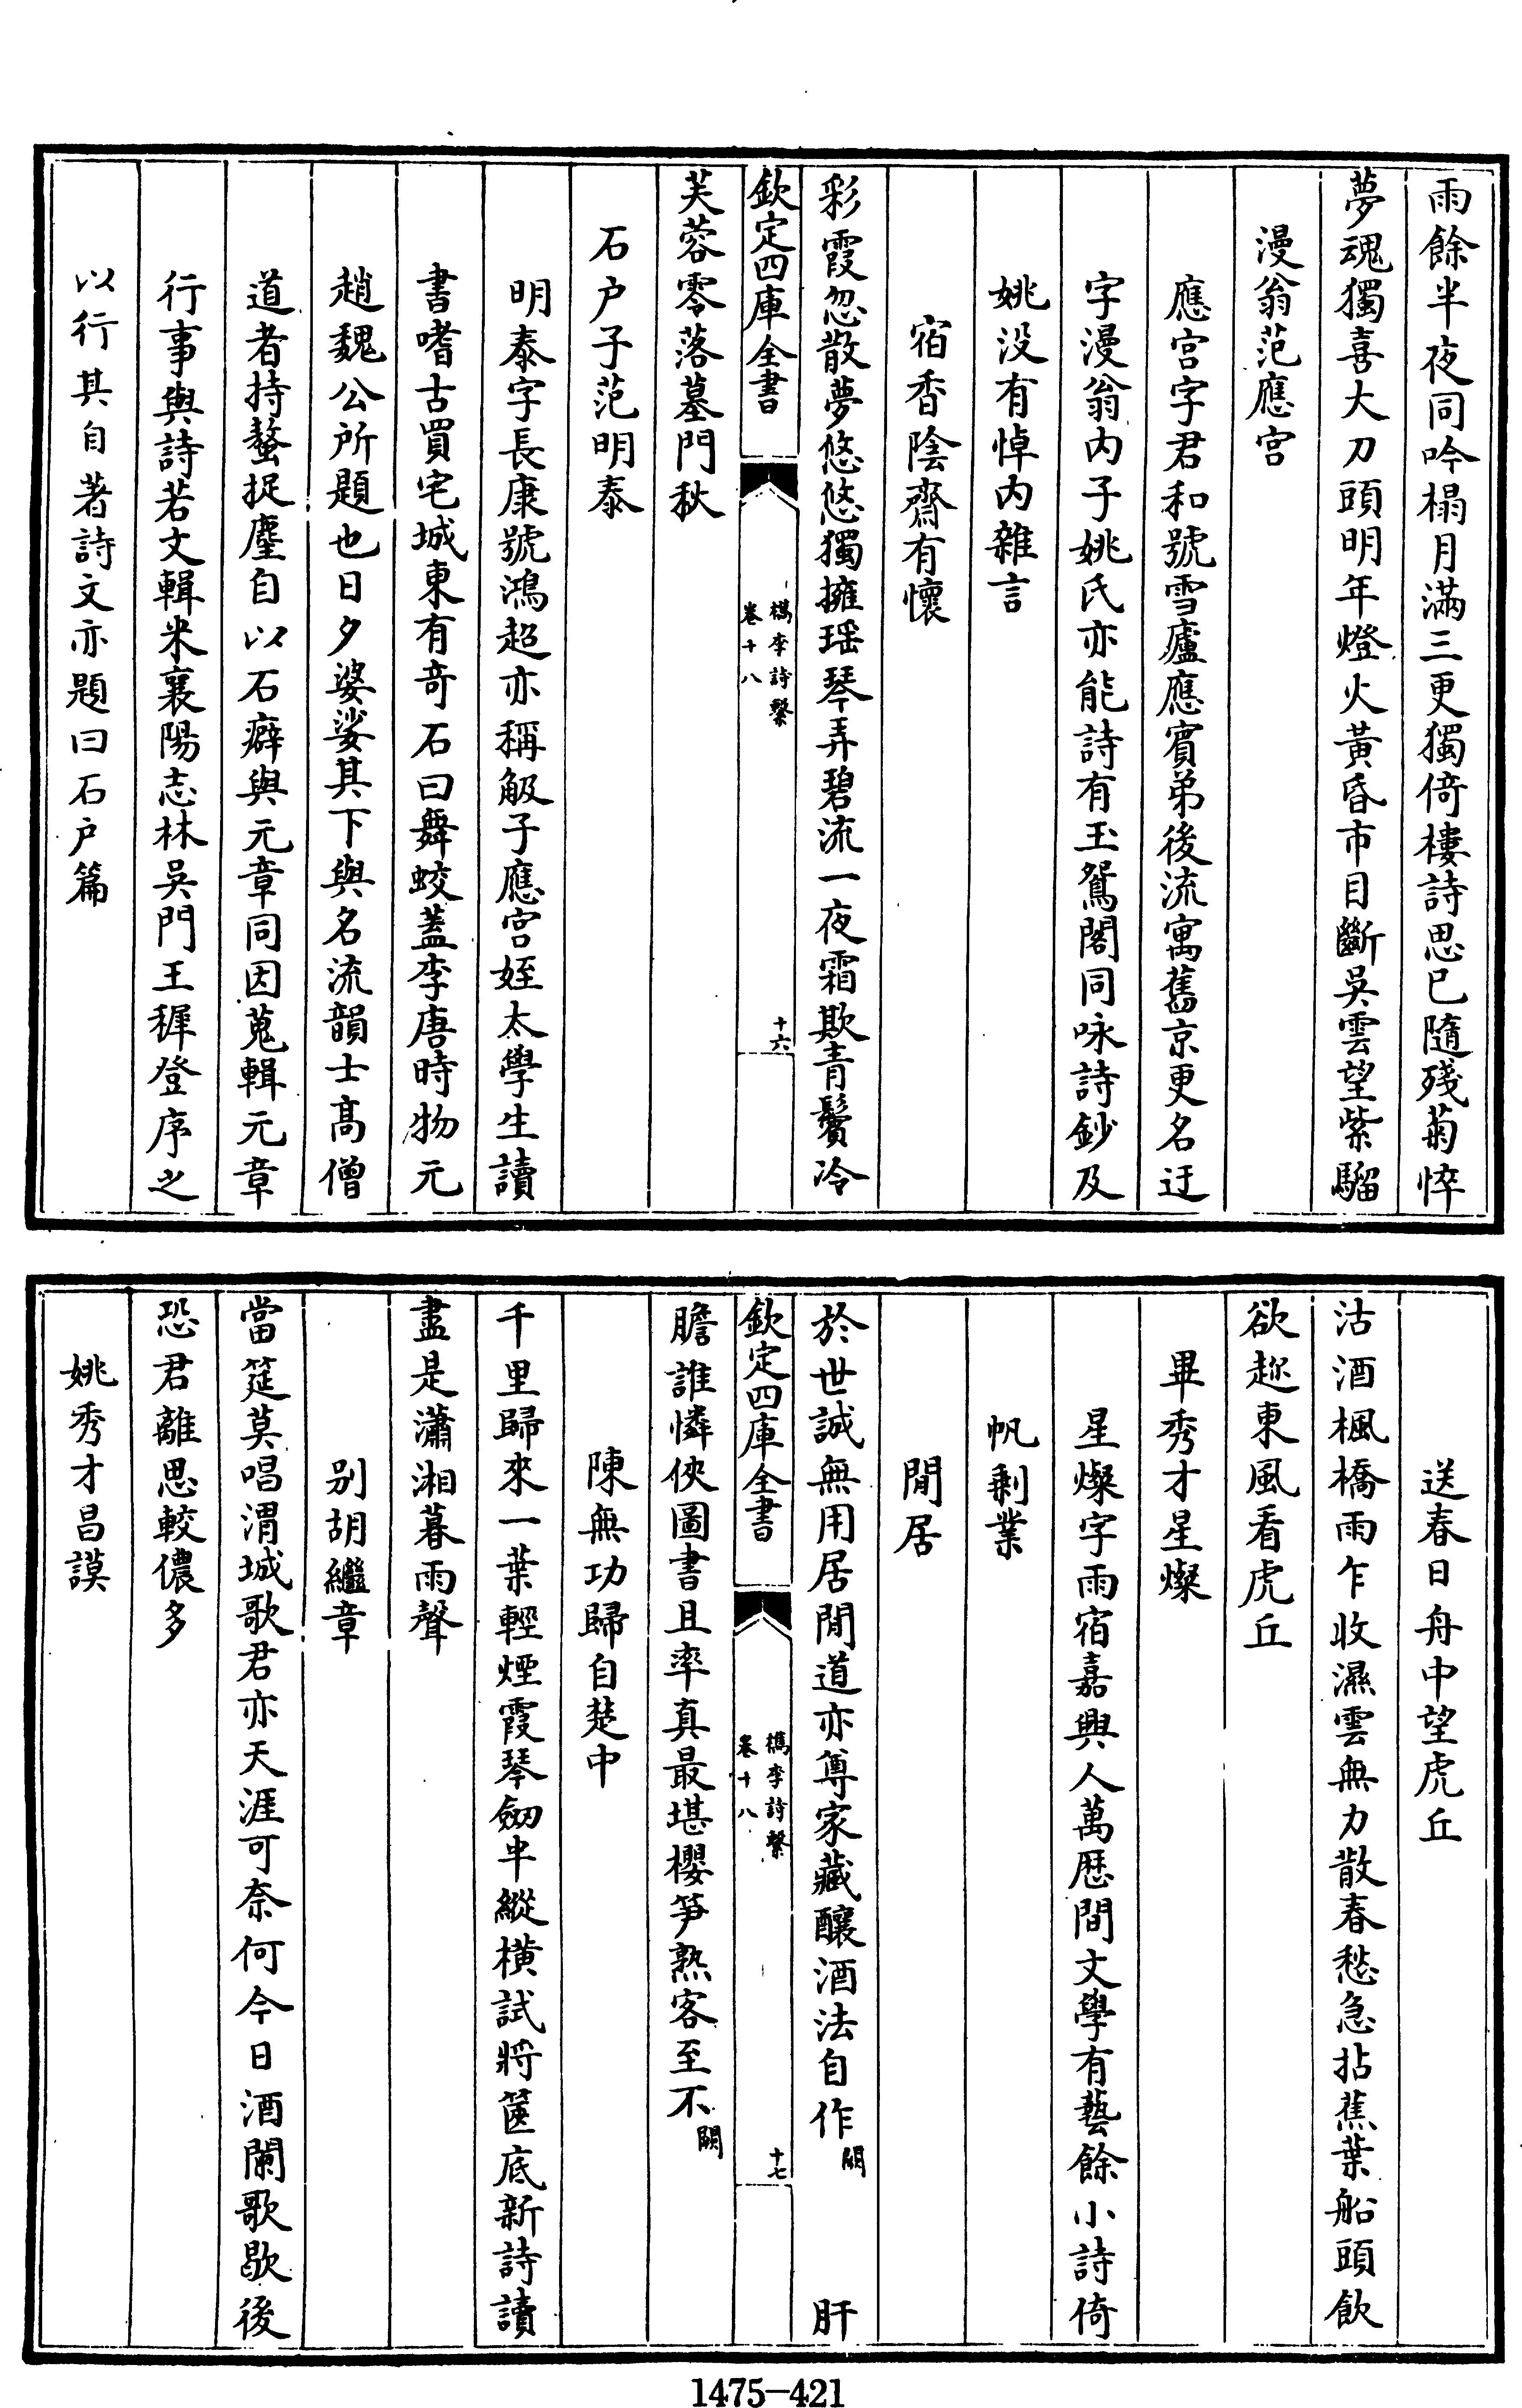 雨餘半夜同吟榻月滿三更獨倚樓詩思已隨殘菊悴
夢魂獨喜大刀頭明年燈火黃昏市目斷吳雲望紫騮
漫翁范應宮
應宮字君和號雪廬應賓弟後流寓舊京更名迂
字漫翁内子姚氏亦能詩有玉鴛閣同咏詩鈔及
姚没有悼内雜言
宿香陰齋有懷
彩霞忽散夢悠悠獨擁瑶琴弄碧流一夜霜欺青鬢冷
欽定四庫全書
檇李詩繫
卷十八
十六
芙蓉零落墓門秋
石户子范明泰
明泰字長康號鴻超亦稱觙子應宮姪太學生讀
書嗜古買宅城東有奇石曰舞蛟蓋李唐時物元
趙魏公所題也日夕婆娑其下與名流韻士髙僧
道者持螯捉麈自以石癖與元章同因蒐輯元章
行事與詩若文輯米襄陽志林吳門王穉登序之
以行其自著詩文亦題曰石户篇
送春日舟中望虎丘
沽酒楓橋雨乍收濕雲無力散春愁急拈蕉葉船頭飲
欲趂東風看虎丘
畢秀才星燦
星燦字雨宿嘉興人萬厯間文學有藝餘小詩倚
帆剩業
閒居
於世誠無用居閒道亦尊家藏釀酒法自作闕 肝
欽定四庫全書
檇李詩繫
卷十八
十七
膽誰憐俠圖書且率真最堪櫻笋熟客至不闕
陳無功歸自楚中
千里歸來一葉輕煙霞琴劒半縱横試將篋底新詩讀
盡是瀟湘暮雨聲
别胡繼章
當筵莫唱渭城歌君亦天涯可奈何今日酒闌歌歇後
恐君離思較儂多
姚秀才昌謨
1475-421